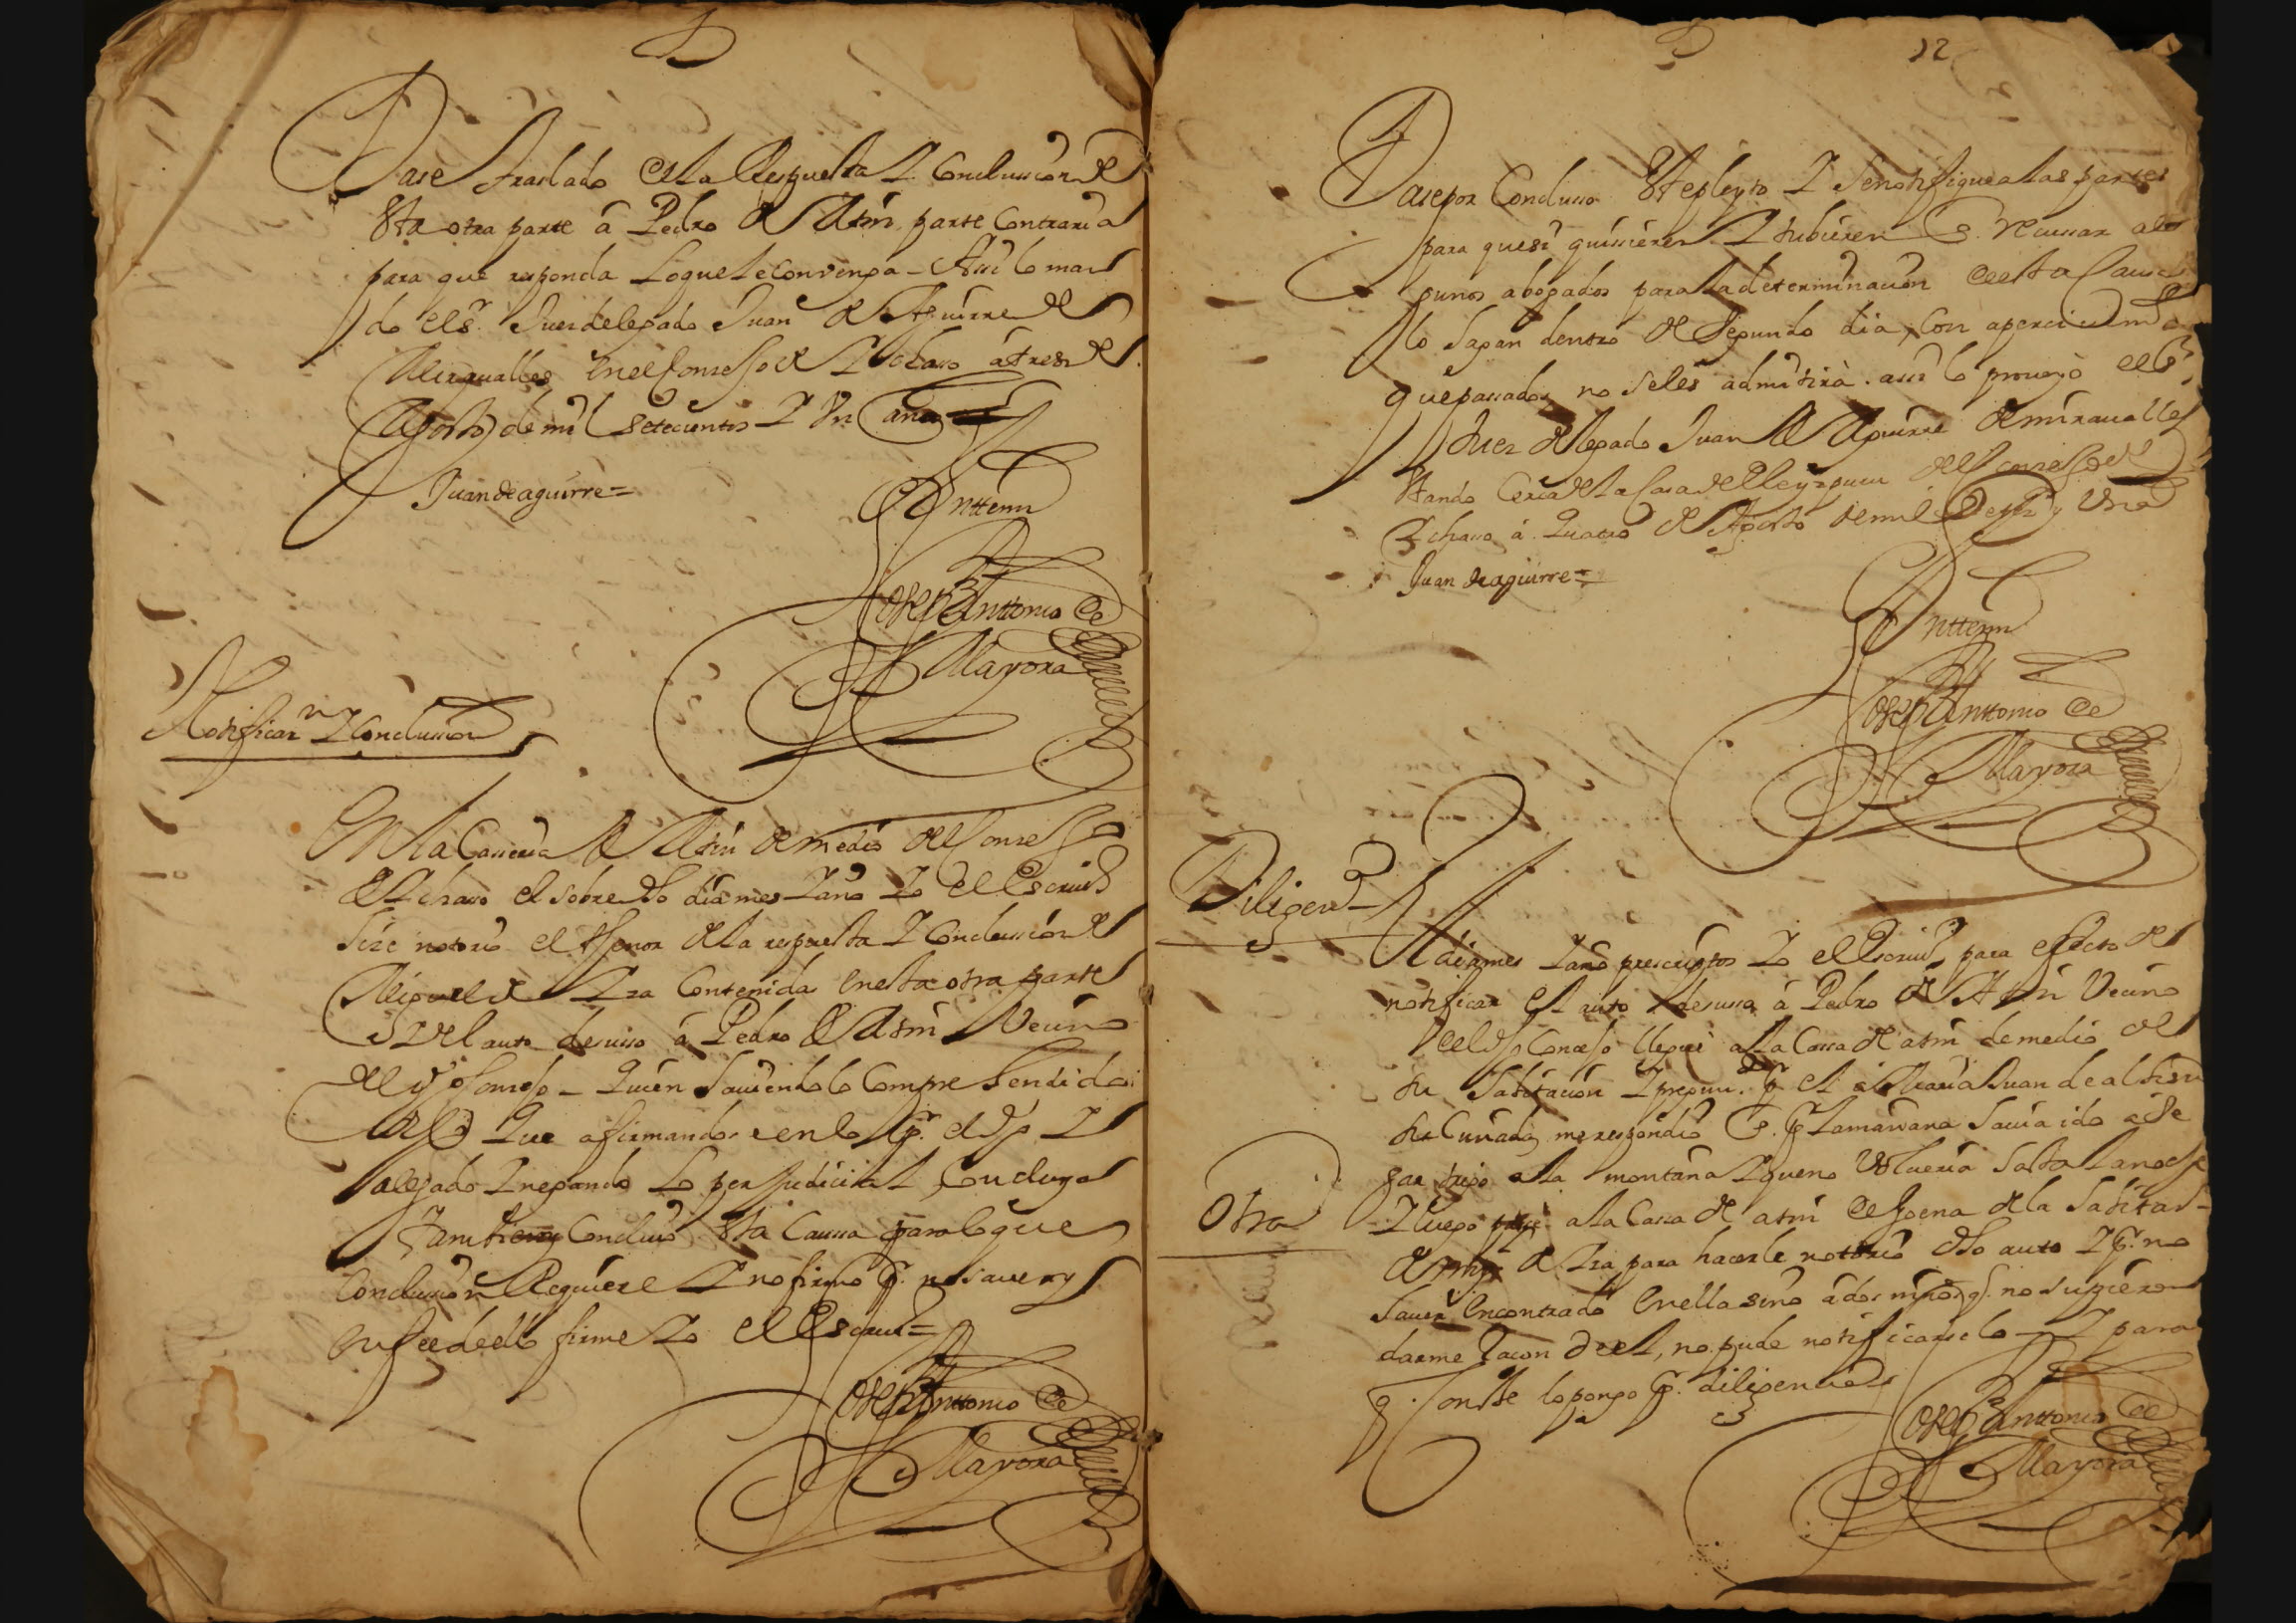 Dase traslado esta Respuesta I Conclusion de
Sta otra parte â Pedro de Atin parte Contraria
para que responda Loque Le Convenga - Assi lo man
do el sr. Juez delegado Juan de Aguirre de
Miraualles en el Conzejo de Ichaso â tres de
Agosto de mil setecientos I Vn años
Juan de aguirre =
Anttemi
Joseph Anttonio de
Mayora
Notificazn I Conclusion
En la Caseria de Atin de medio del Consejo
de Ichaso el sobre dho dia mes I año Io el Escriuo
hize notorio el thenor de la respuesta I Conclussion de
Miguel de Ira Contenida en esta otra parte
I del auto de suso â Pedro de Atin Vecino
del dho Consejo - Quien hauiendolo Comprehendido
Dixo Que afirmandose en lo qr. el dho I
alegado I negando Lo perjudicial Concluya
I tambien Concluio Sta Caussa para lo que
Conclusion Requiere I no firmo p. no sauer y
en fee de ello firme Io el Escriuo =
Joseph Anttonio de
Mayora
12
Dase por Concluso Ste pleyto I se notifique a las partes
para que si quisieren I tubieren q. recusar al
gunos abogados para la determinacion de esta Caussa
lo hagan dentro de segundo dia, con aperciuimto
que passado, no se les admitirà. assi lo proueyò el Sr
Juez delegado Juan de Aguirre de miraualles
Stando Cerca de La Casa de Pleyzpuru del Consejo de
Ichaso â Quatro de Agosto de mil Setezs y Vno
Juan de aguirre =
Anttemi
Joseph Anttonio de
Mayora
Diligena
A dia mes I año prescriptos Io el Escriuo para efecto de
notificar el auto de suso â Pedro de Atin Vecino
del dho Concejo llegué a la Cassa de atin de medio de
su habitacion I pregun. p. el â Maria Juan de altisu
su Cuñada, me respondio q. p. La mañana hauia ido a se
gar trigo a la montaña I que no Voluería hasta La noche
Otra
I luego passe a la Cassa de atin de goena de la habitaz
de Migl de Ira para hacerle notorio dho auto I p. no
hauer encontrado en ella sino â dos niños q. no supieron
darme racon de el, no pude notificarselo - I para
q. Conste lo pongo p. diligencia
Joseph Anttonio de
Mayora